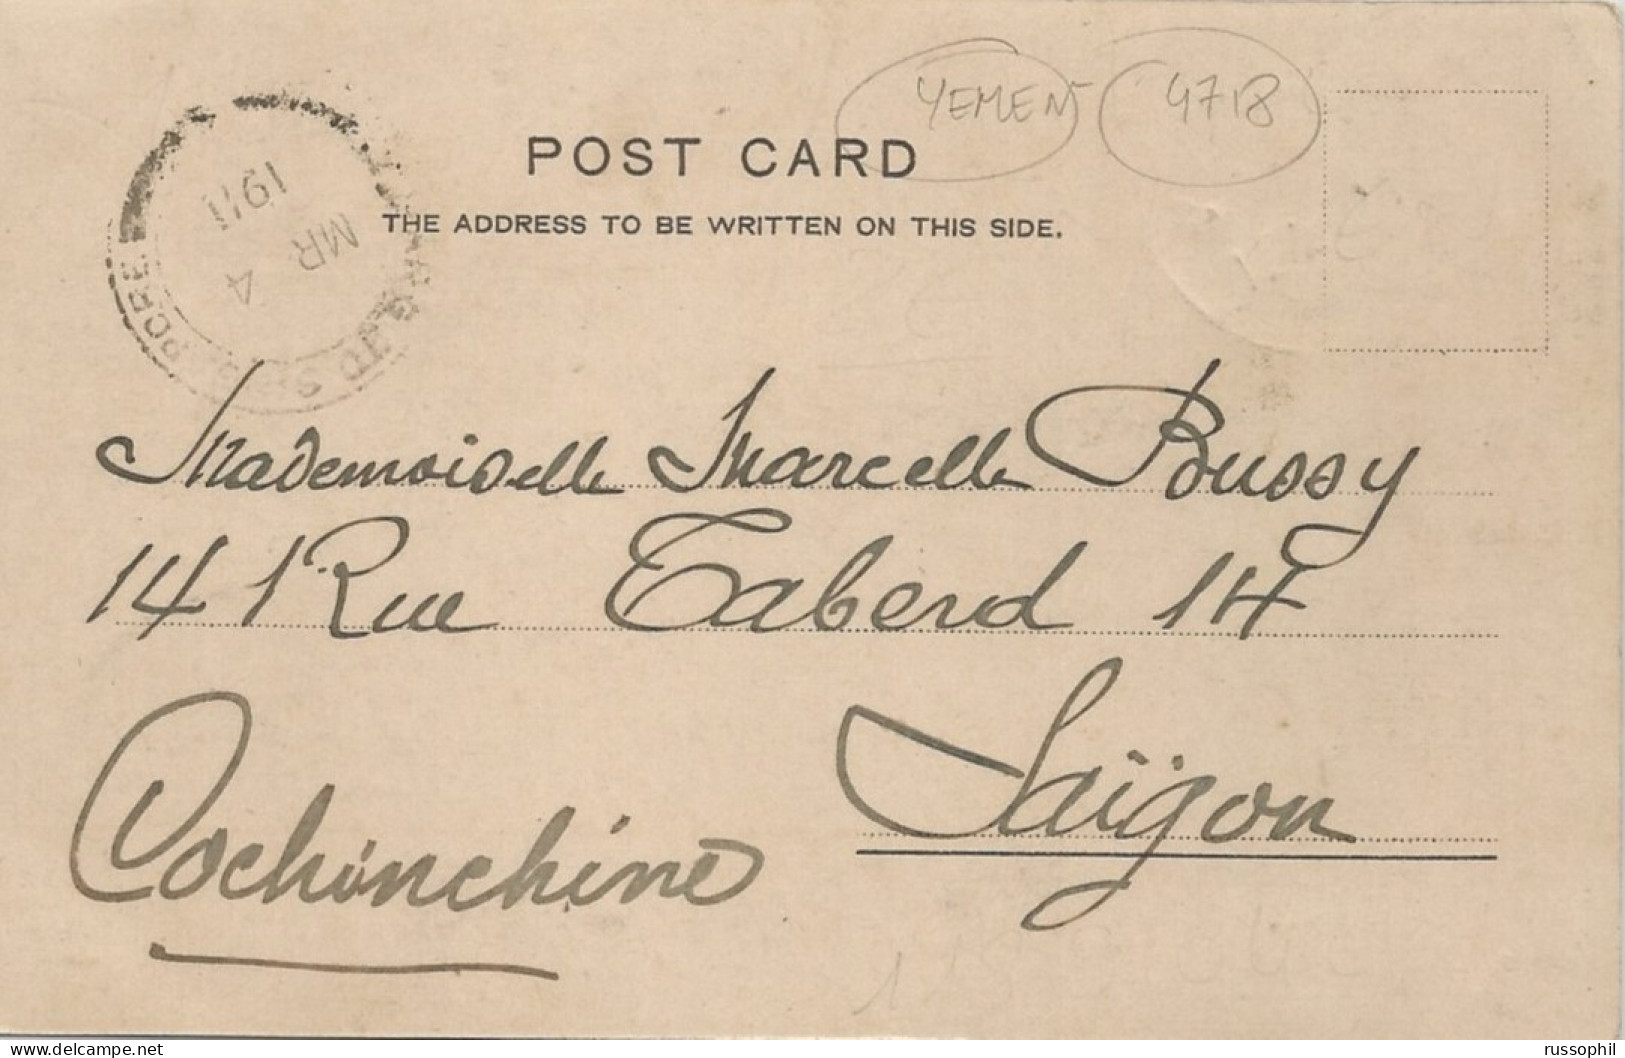 YEMEN 4718
POST CARD
THE ADDRESS TO BE WRITTEN ON THIS SIDE.
1911
MR
4
TO S PORE
Mademoiselle Marcelle Bussy
14 Rue Taberd 14
Saïgon
Cochinchine
delcampe.net
russophil